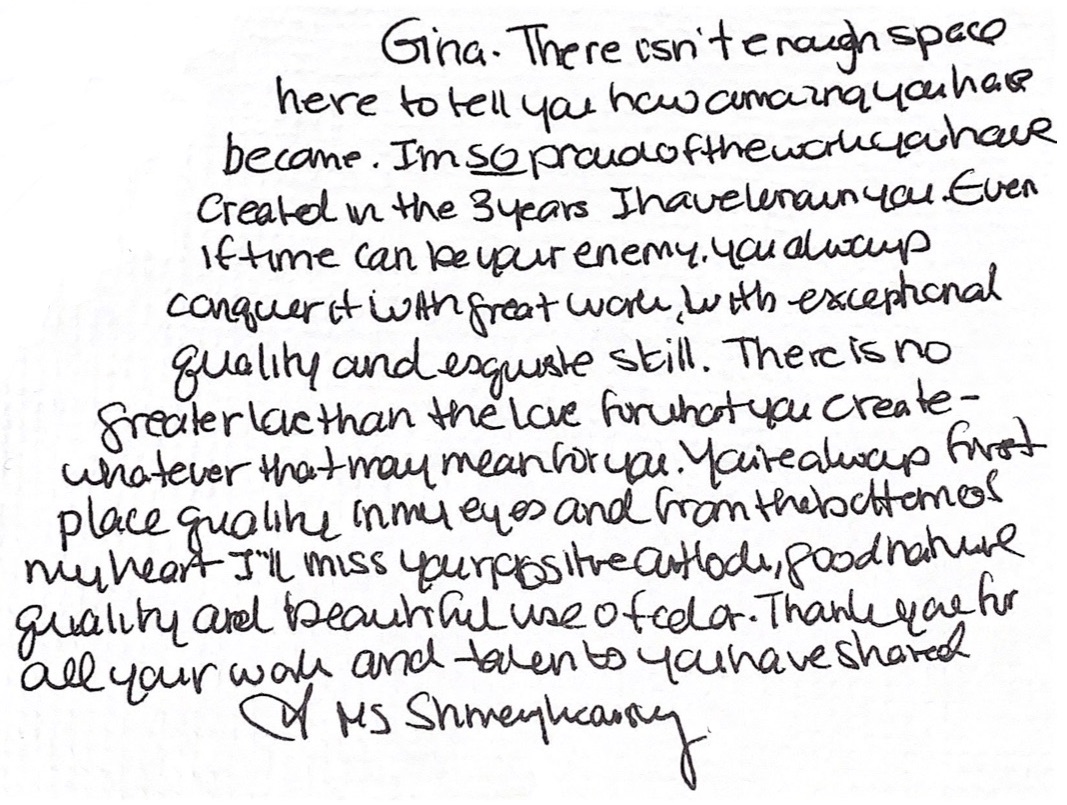 Gina. There isn't enough space
here to tell you how amazing you have
become. I'm SO proud of the work you have
created in the 3 years I have known you. Even
if time can be your enemy. you always
conquer it with great work, with exceptional
quality and esquiste skill. There is no
greater love than the love for what you create-
whatever that may mean for you. You're always first
place quality in my eyes and from the bottem of
my heart I'll miss your positive outlook, good nature
quality and beautiful use of color. Thank you for
all your work and talents you have shared
MS